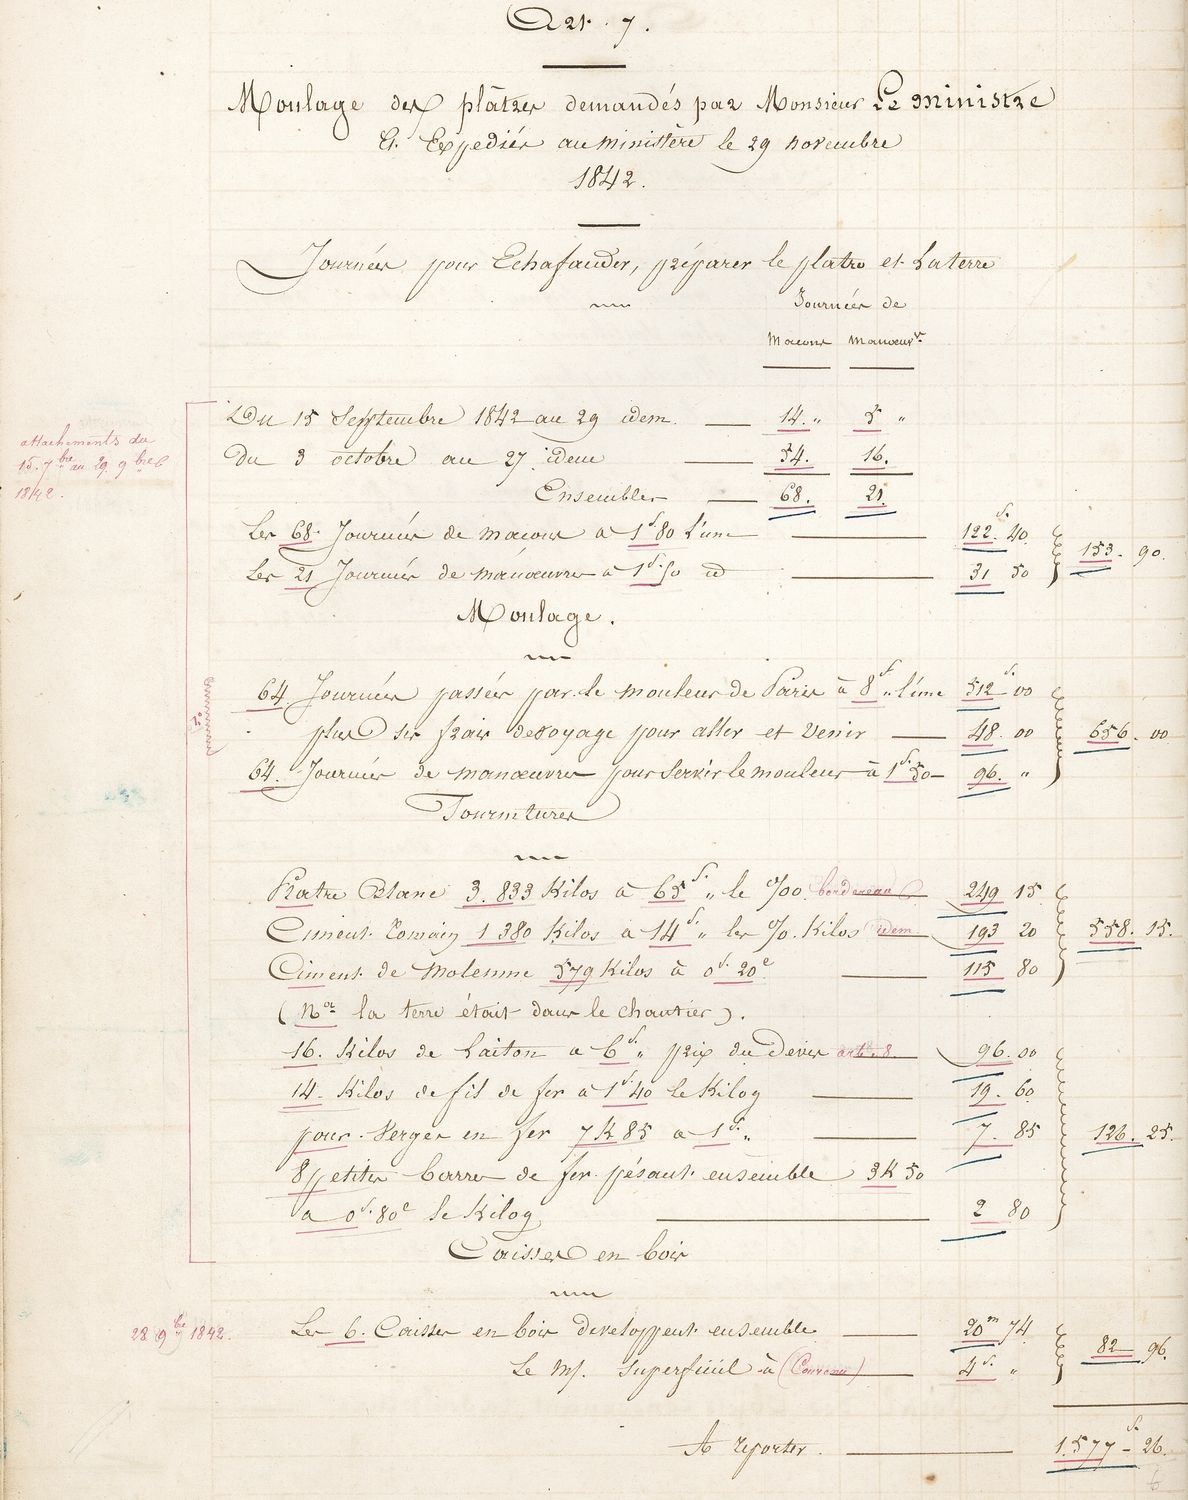 Art. 7.
Moulage des plâtres demandés par Monsieur Le ministre
Et Expediés au ministère le 29 novembre
1842.
Journées pour Echafauder, préparer le platre et La terre
Journées de
Macons Manoeuvr.
Du 15 Septembre 1842 au 29 idem. 14. " 5 "
attachements du
15. 7bre au 29. 9bre
1842.
du 3 octobre au 27 idem 54. 16.
Ensembles 68. 21
Les 68 Journées de macons a 1f.80 L'une 122.f 40
Les 21 Journées de manoeuvres a 1f.50 id 31 50
153. 90
Moulage.
64 Journées passées par le mouleur de Paris à 8f " l'une 512f 00
plus ses frais de voyage pour aller et venir 48. 00
656. 00
64. Journées de manoeuvres pour servir le mouleur à 1f.50 96. "
Fournitures
Platre Blanc 3.833 Kilos a 65f. " le %00 bordereau 249 15
Ciment Romain 1380 Kilos a 14f. " les %. Kilos idem 193 20
558. 15.
Ciment de Molemme 579 Kilos à 0f.20c 115 80
(Na la terre était dans le chantier).
16. Kilos de Laiton a 6f. " prix du Devis art. 8. 96. 00
14. Kilos de fil de fer a 1f.40 le Kilog 19. 60
pour Verges en fer 7K85 a 1f. " 7. 85
126. 25.
8 petites barres de fer pésant ensemble 3K50
a 0f.80c le Kilog 2 80
Caisses en bois
28 9bre 1842.
Les 6. Caisses en bois developpent ensemble 20m 74
Le M. superficiel à (Convenu) 4f. "
82 96.
A reporter. 1.577f. 26.